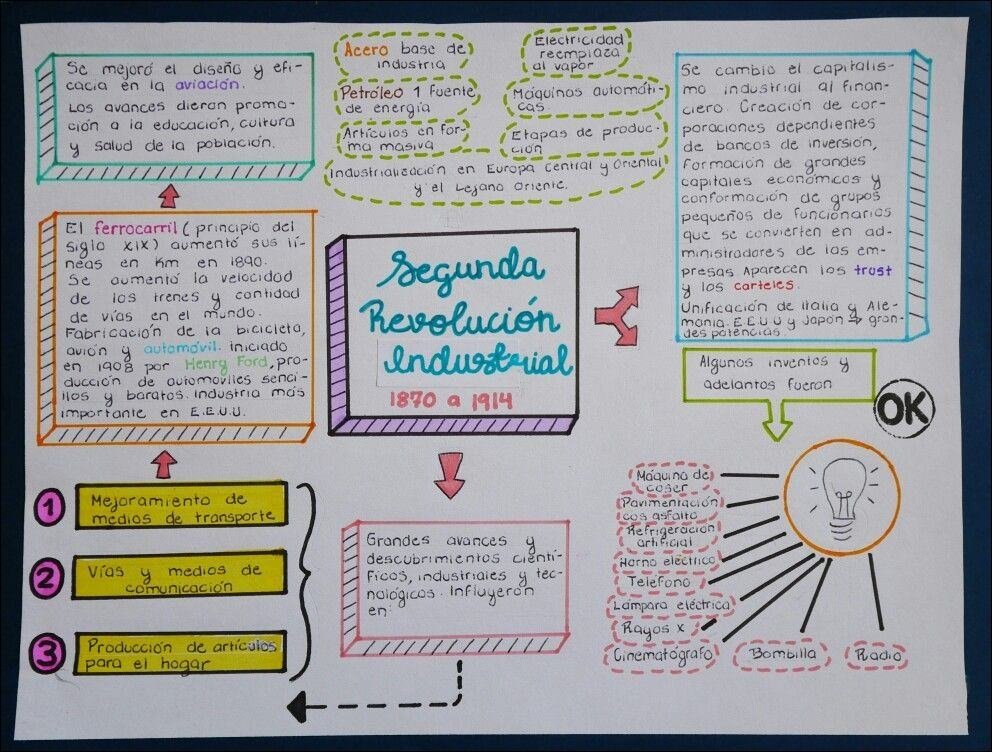 Se mejoró el diseño y efi-
cacia en la aviación.
Los avances dieron promo-
ción a la educación, cultura
y salud de la población.
Acero base de
industria
Electricidad
reemplaza
al vapor
Petróleo 1 fuente
de energía
Máquinas automáti-
cas.
Artículos en for-
ma masiva
Etapas de produc-
ción
Industrialización en Europa Central y Oriental
y el Lejano Oriente.
Se cambio el capitalis-
mo industrial al finan-
ciero. Creación de cor-
poraciones dependientes
de bancos de inversión,
formación de grandes
capitales económicos y
conformación de grupos
pequeños de funcionarios
que se convierten en ad-
ministradores de las em-
presas Aparecen los trust
y los carteles.
Unificación de Italia y Ale-
mania. E.E.U.U y Japón → gran-
des potencias.
El ferrocarril (principio del
siglo XIX) aumentó sus lí-
neas en Km en 1890.
Se aumentó la velocidad
de los trenes y cantidad
de vías en el mundo.
Fabricación de la bicicleta,
avión y automóvil. iniciado
en 1908 por Henry Ford, pro-
ducción de automóviles senci-
llos y baratos. Industria más
importante en E.E.U.U.
Segunda
Revolución
Industrial
1870 a 1914
Algunos inventos y
adelantos fueron
OK
1
Mejoramiento de
medios de transporte
2
Vías y medios de
comunicación
3
Producción de artículos
para el hogar
Grandes avances y
descubrimientos cientí-
ficos, industriales y tec-
nológicos. Influyeron
en:
Máquina de
coser
Pavimentación
cos asfalto
Refrigeración
artificial
Horno eléctrico
Teléfono
Lámpara eléctrica
Rayos x
Cinematógrafo
Bombilla
Radio